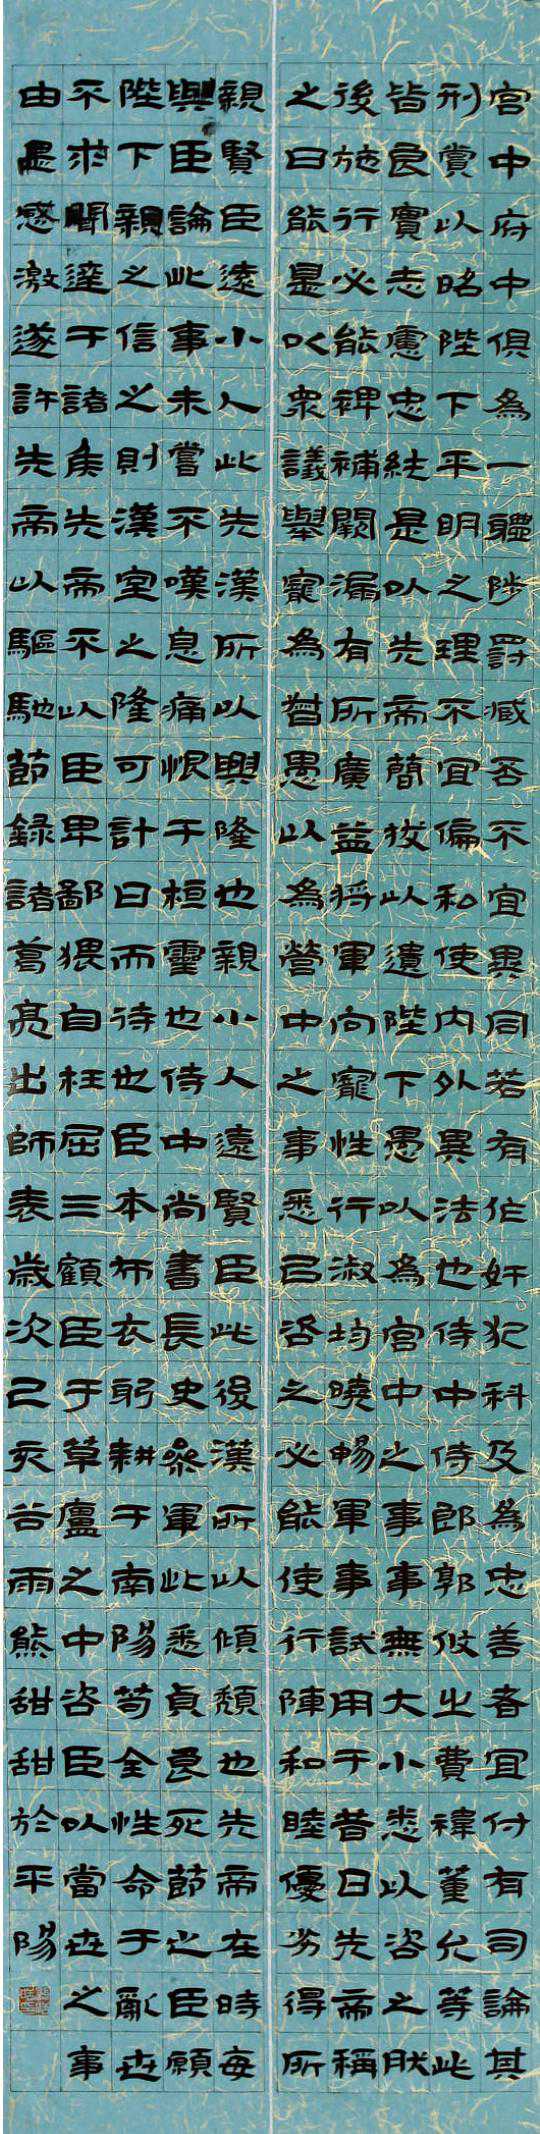 宮中府中俱為一體陟罰臧否不宜異同若有作奸犯科及為忠善者宜付有司論其
刑賞以昭陛下平明之理不宜偏私使內外異法也侍中侍郎郭攸之費禕董允等此
皆良實志慮忠純是以先帝簡拔以遺陛下愚以為宮中之事事無大小悉以咨之然
後施行必能裨補闕漏有所廣益將軍向寵性行淑均曉暢軍事試用于昔日先帝稱
之曰能是以眾議舉寵為督愚以為營中之事悉以咨之必能使行陣和睦優劣得所
親賢臣遠小人此先漢所以興隆也親小人遠賢臣此後漢所以傾頹也先帝在時每
與臣論此事未嘗不嘆息痛恨于桓靈也侍中尚書長史參軍此悉貞良死節之臣願
陛下親之信之則漢室之隆可計日而待也臣本布衣躬耕于南陽苟全性命于亂世
不求聞達于諸侯先帝不以臣卑鄙猥自枉屈三顧臣于草廬之中咨臣以當世之事
由是感激遂許先帝以驅馳節錄諸葛亮出師表歲次己亥谷雨熊甜甜於平陽